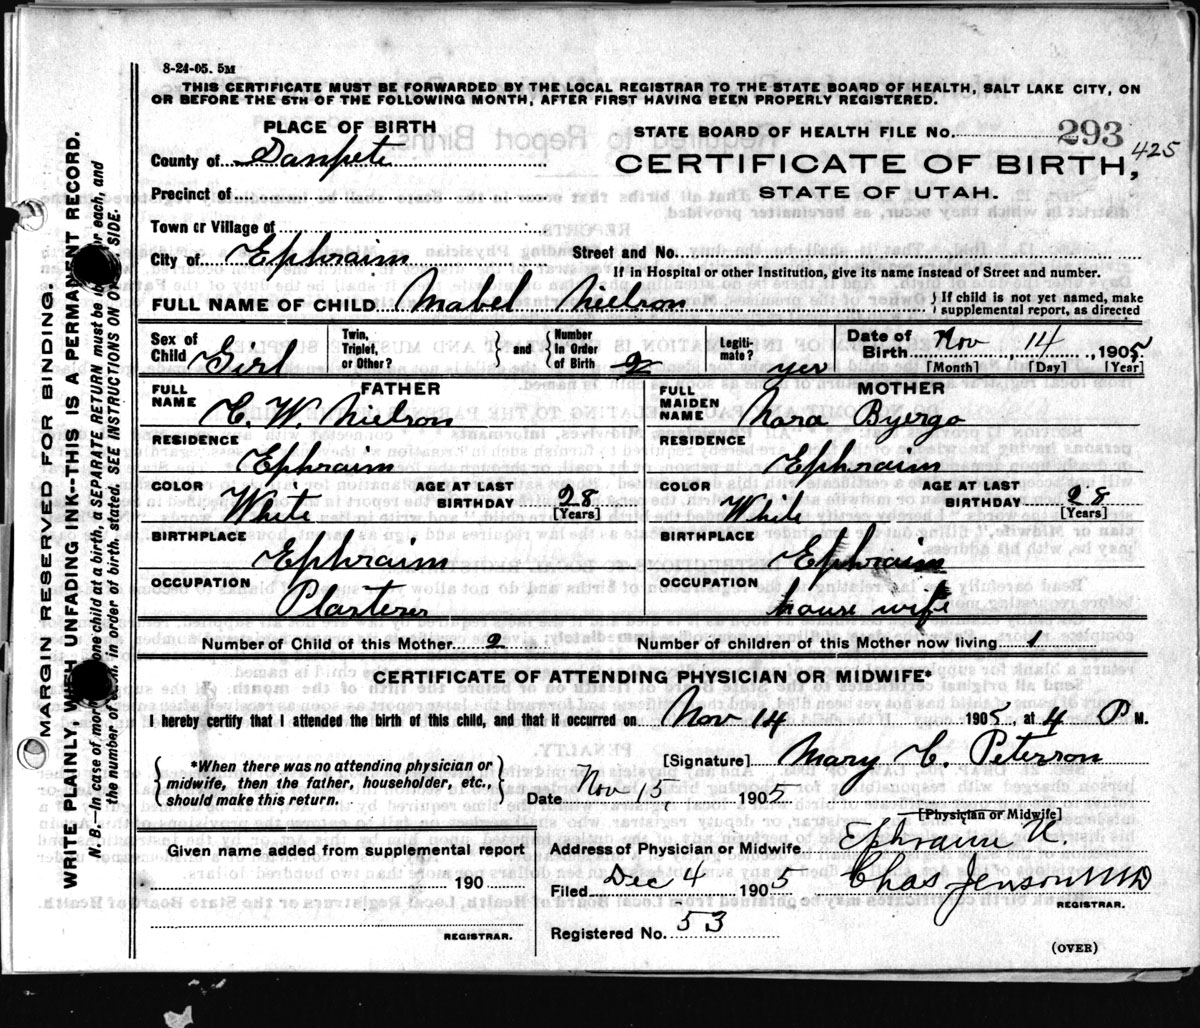 8-24-05. 5M
THIS CERTIFICATE MUST BE FORWARDED BY THE LOCAL REGISTRAR TO THE STATE BOARD OF HEALTH, SALT LAKE CITY, ON
OR BEFORE THE 5TH OF THE FOLLOWING MONTH, AFTER FIRST HAVING BEEN PROPERLY REGISTERED.
PLACE OF BIRTH
STATE BOARD OF HEALTH FILE No. 293
425
County of Sanpete
CERTIFICATE OF BIRTH,
STATE OF UTAH.
Precinct of
Town or Village of
City of Ephraim Street and No.
If in Hospital or other Institution, give its name instead of Street and number.
FULL NAME OF CHILD Mabel Nielson } If child is not yet named, make supplemental report, as directed
Sex of Child Girl Twin, Triplet, or Other? } and { Number In Order of Birth 2 Legitimate? yes Date of Birth Nov, 14, 1905
[Month] [Day] [Year]
FATHER MOTHER
FULL NAME C. W. Nielson FULL MAIDEN NAME Nora Byergo
RESIDENCE Ephraim RESIDENCE Ephraim
COLOR White AGE AT LAST BIRTHDAY 28 [Years] COLOR White AGE AT LAST BIRTHDAY 28 [Years]
BIRTHPLACE Ephraim BIRTHPLACE Ephraim
OCCUPATION Plasterer OCCUPATION house wife
Number of Child of this Mother 2 Number of children of this Mother now living 1
CERTIFICATE OF ATTENDING PHYSICIAN OR MIDWIFE*
I hereby certify that I attended the birth of this child, and that it occurred on Nov 14 1905, at 4 P M.
{ *When there was no attending physician or midwife, then the father, householder, etc., should make this return. }
[Signature] Mary C. Peterson
Date Nov 15, 1905
[Physician or Midwife]
Given name added from supplemental report
190
REGISTRAR.
Address of Physician or Midwife Ephraim U.
Filed Dec 4 1905 Chas Jenson MD
REGISTRAR.
Registered No. 53
(OVER)
MARGIN RESERVED FOR BINDING.
WRITE PLAINLY, WITH UNFADING INK--THIS IS A PERMANENT RECORD.
N. B.—In case of more one child at a birth, a SEPARATE RETURN must be for each, and
the number of in order of birth, stated. SEE INSTRUCTIONS ON SIDE.